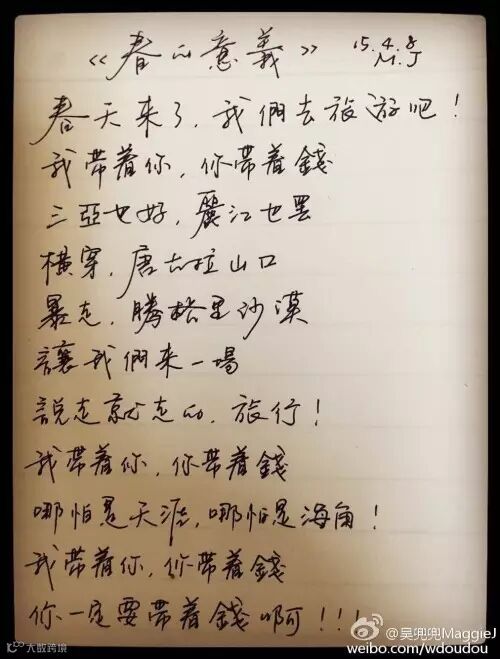 《春的意義》 15.4.8
M.J
春天来了，我們去旅游吧！
我带着你，你带着錢
三亞也好，麗江也罢
横穿，唐古拉山口
暴走，腾格里沙漠
讓我們来一場
說走就走的，旅行！
我带着你，你带着錢
哪怕是天涯，哪怕是海角！
我带着你，你带着錢
你一定要带着錢啊！！！
大数跨境
@吴兜兜MaggieJ
weibo.com/wdoudou